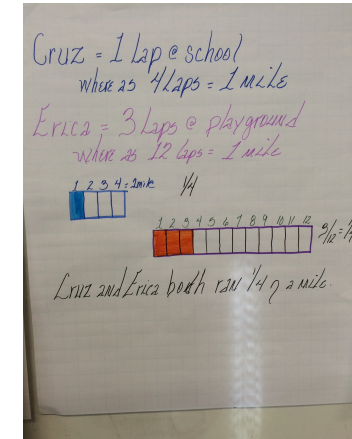 Cruz = 1 Lap @ school
where as 4 Laps = 1 mile
Erica = 3 Laps @ playground
where as 12 laps = 1 mile
1 2 3 4 = 1 mile 1/4
1 2 3 4 5 6 7 8 9 10 11 12
3/12 = 1/
Cruz and Erica booth ran 1/4 of a mile.